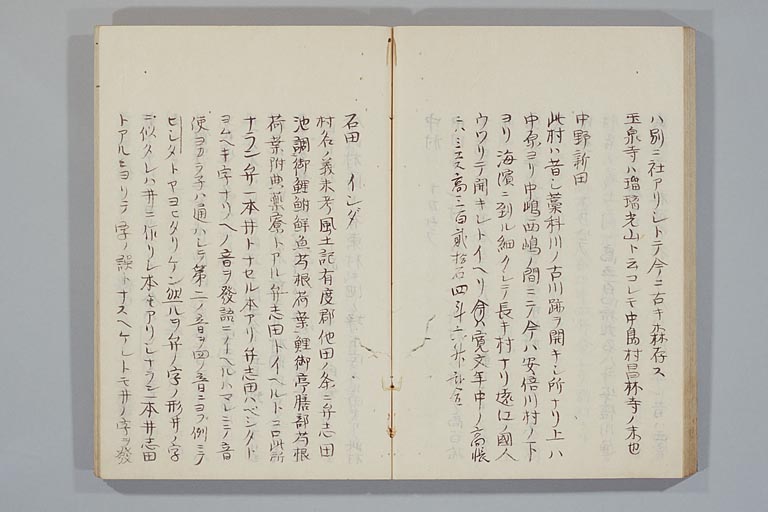 ハ別ニ社アリシトテ今ニ古キ森存ス
玉泉寺ハ瑠璃光山ト云コレモ中島村昌林寺ノ末也
中野新田
此村ハ昔シ藁科川ノ古川跡ヲ開キシ所ナリ上ハ
中原ヨリ中嶋西嶋ノ間ニシテ今ハ安倍川村ノ下
ヨリ海濱ニ到ル細クシテ長キ村ナリ遠江ノ國人
ウツリテ開キシトイヘリ寛文年中ノ高帳
ニ高三百貳拾石四斗二升
石田 インダ
村名ノ義未考風土記有度郡他田ノ条ニ弁志田
池調御鯉鮒鮮魚芍根荷葉鯉御亭膳部芍根
荷葉附典薬寮トアル弁志田トイヘルトコロ此所
ナラン弁一本井トナセル本アリ弁志田ハベンダト
ヨムヘキ字ナリヘノ音ヲ發語ニイヘルハマレニシテ音
便ヨカラ子ハ通ハシテ第二ノ音ヲ四ノ音ニヨブ例ニテ
ビンダトヤヨビタリケン然ルヲ弁ノ字ノ形井ノ字
ニ似タレハ井ニ作リシ本モアリシナラン一本井志田
トアルヒヨリテ字ノ誤トナスヘケレトモ井ノ字ヲ發